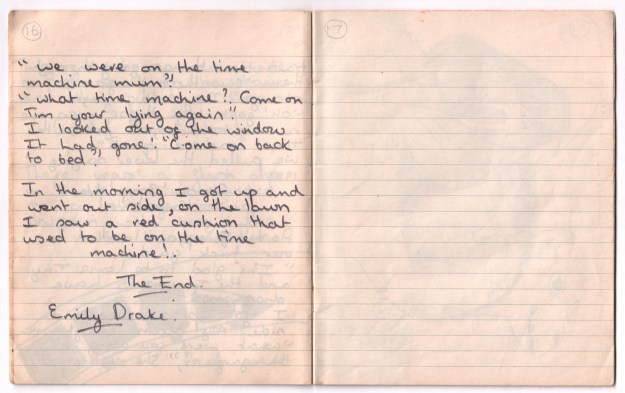 16
"we were on the time
machine mum".
"what time machine? Come on
Tim your lying again".
I looked out of the window
It had, gone! "Come on back
to bed".
In the morning I got up and
went out side, on the lawn
I saw a red cushion that
used to be on the time
machine!.
The End.
Emily Drake.
17